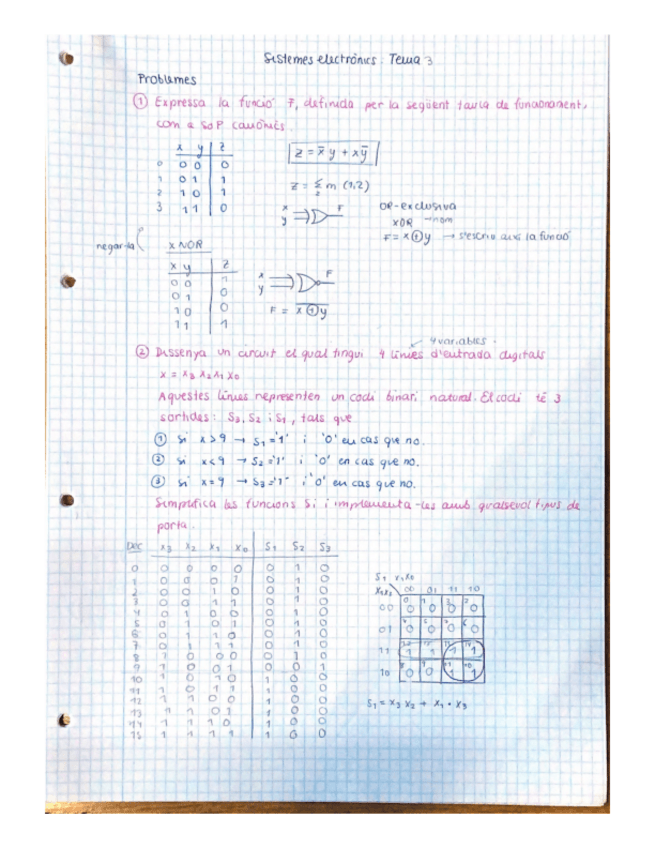 Sistemes electrònics: Tema 3
Problemes
① Expressa la funció F, definida per la següent taula de funcionament,
com a SoP canònics.
x y z
0 0 0 0
1 0 1 1
2 1 0 1
3 1 1 0
z = x̅ y + x y̅
z = Σ m (1,2)
2
x
y
F
OR-exclusiva
XOR → nom
F = x ⊕ y → s'escriu així la funció
negar-la
XNOR
x y z
0 0 1
0 1 0
1 0 0
1 1 1
x
y
F
F = x ⊕ y
4 variables.
② Dissenya un circuit el qual tingui 4 línies d'entrada digitals
x = x₃ x₂ x₁ x₀
Aquestes línies representen un codi binari natural. El codi té 3
sortides: S₃, S₂ i S₁, tals que
① si x > 9 → S₁ = '1' i '0' en cas que no.
② si x < 9 → S₂ = '1' i '0' en cas que no.
③ si x = 9 → S₃ = '1' i '0' en cas que no.
Simplifica les funcions Si i implementa-les amb qualsevol tipus de
porta.
Dec x₃ x₂ x₁ x₀ S₁ S₂ S₃
0 0 0 0 0 0 1 0
1 0 0 0 1 0 1 0
2 0 0 1 0 0 1 0
3 0 0 1 1 0 1 0
4 0 1 0 0 0 1 0
5 0 1 0 1 0 1 0
6 0 1 1 0 0 1 0
7 0 1 1 1 0 1 0
8 1 0 0 0 0 1 0
9 1 0 0 1 0 0 1
10 1 0 1 0 1 0 0
11 1 0 1 1 1 0 0
12 1 1 0 0 1 0 0
13 1 1 0 1 1 0 0
14 1 1 1 0 1 0 0
15 1 1 1 1 1 0 0
S₁ x₁x₀
x₃x₂ 00 01 11 10
00 0 0 0 0
01 0 0 0 0
11 1 1 1 1
10 0 0 1 1
S₁ = x₃ x₂ + x₁ · x₃